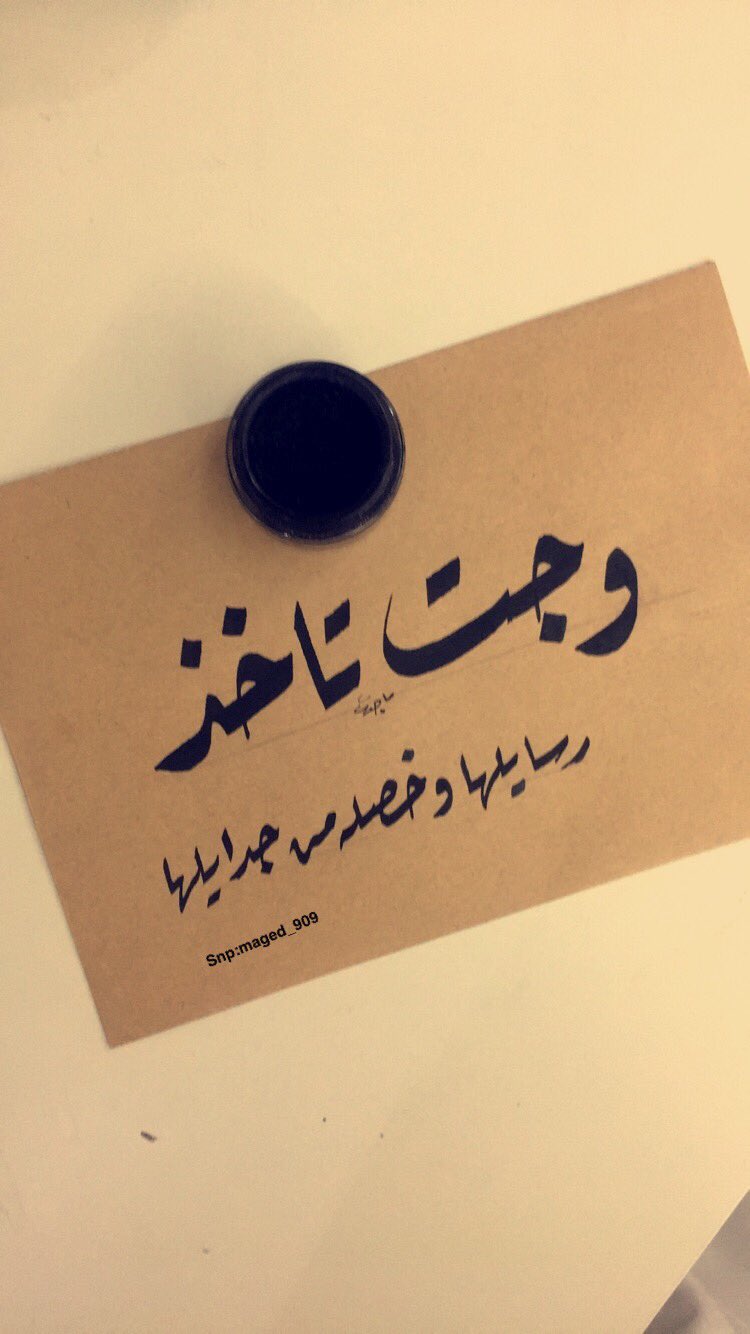 وجت تاخذ
ماجد
رسايلها وخصله من جدايلها
Snp:maged_909